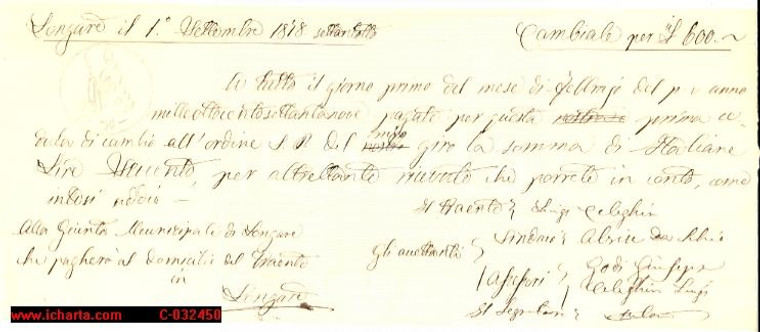 Longare il 1.° Settembre 1878 settantotto Cambiale per £ 600.~
A tutto il giorno primo del mese di Febbrajo del p v anno
milleottocentosettantanove pagate per questa prima ce
dola di cambio all'ordine S. P. del mio giro la somma di Italiane
Lire Seicento, per altrettante ricevute che porrete in conto, come
Il Traente Luigi Celeghin
Alla Giunta Municipale di Longare
che pagherà al domicilio del Traente
in
Longare
gli accettanti
Sindaco
Assessori Godi Giuseppe
Celeghin Luigi
Il Segretario
www.icharta.com C-032450